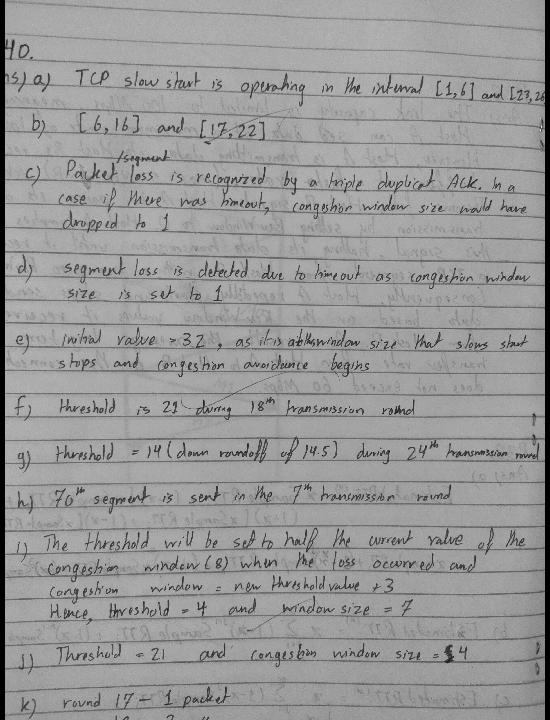 40.
ns) a) TCP slow start is operating in the interval [1,6] and [23,26
b) [6,16] and [17,22]
c) Packet/segment loss is recognized by a triple duplicat ACK. In a
case if there was timeout, congestion window size would have
dropped to 1
d) segment loss is detected due to timeout as congestion window
size is set to 1
e) initial value = 32, as it is at this window size that slows start
stops and congesttion avoidance begins
f) threshold is 21 during 18th transmission round
g) threshold = 14 (down roundoff of 14.5) during 24th transmission round
h) 70th segment is sent in the 7th transmission round
i) The threshold will be set to half the current value of the
congestion window (8) when the loss occurred and
congestion window = new threshold value +3
Hence, threshold = 4 and window size = 7
j) Threshold = 21 and congestion window size = 4
k) round 17 - 1 packet